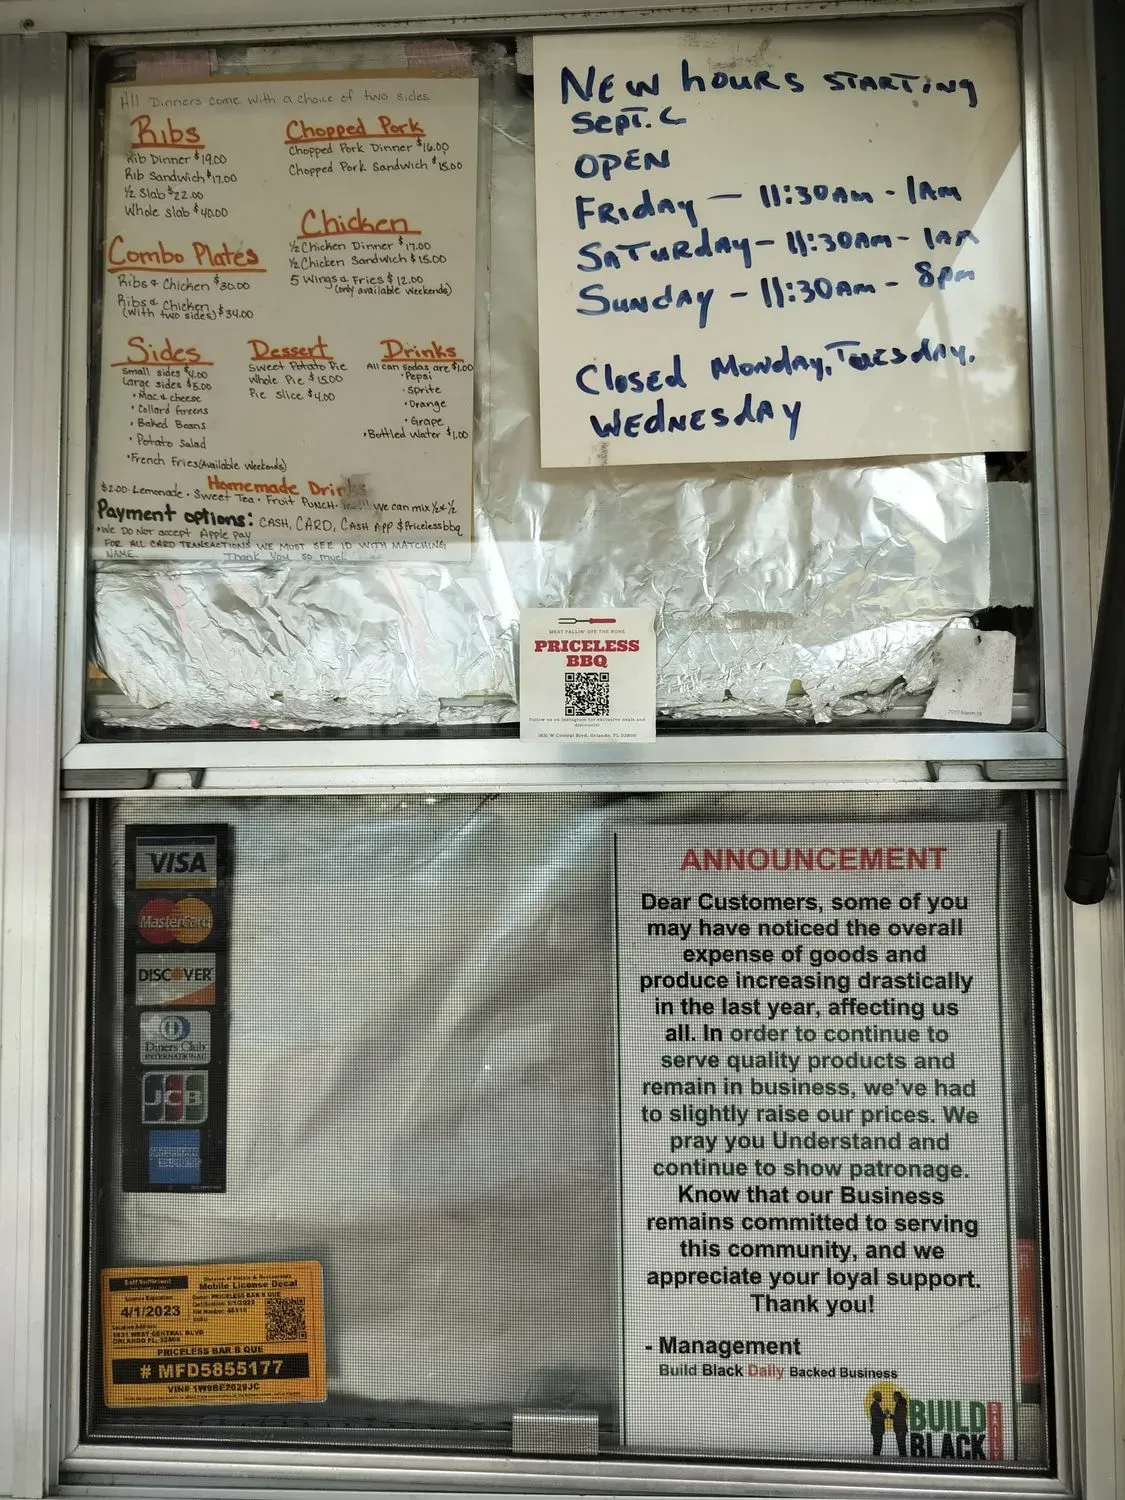 All Dinners come with a choice of two sides
Ribs
Rib Dinner $19.00
Rib Sandwich $17.00
1/2 Slab $22.00
Whole Slab $40.00
Chopped Pork
Chopped Pork Dinner $16.00
Chopped Pork Sandwich $15.00
Chicken
1/2 Chicken Dinner $17.00
1/2 Chicken Sandwich $15.00
5 Wings & Fries $12.00
(only available weekends)
Combo Plates
Ribs & Chicken $30.00
Ribs & Chicken
(with two sides) $34.00
Sides
Small sides $4.00
Large sides $5.00
• Mac & cheese
• Collard Greens
• Baked Beans
• Potato Salad
• French Fries (Available Weekends)
Dessert
Sweet Potato Pie
Whole Pie $15.00
Pie Slice $4.00
Drinks
All can sodas are $1.00
• Pepsi
• Sprite
• Orange
• Grape
• Bottled Water $1.00
Homemade Drinks
$2.00 • Lemonade • Sweet Tea • Fruit Punch • we can mix 1/2 & 1/2
Payment options: CASH, CARD, CASH APP $Pricelessbbq
• We DO NOT accept Apple Pay
FOR ALL CARD TRANSACTIONS WE MUST SEE ID WITH MATCHING
NAME. Thank You so much
NEW hours STARTING
SEPT.
OPEN
FRIday — 11:30AM - 1AM
SATURday — 11:30AM - 1AM
SUNday - 11:30AM - 8pm
Closed Monday, Tuesday,
WEDNESDAY
MEAT FALLIN' OFF THE BONE
PRICELESS
BBQ
Follow us on Instagram for exclusive deals and
discounts!
1631 W Central Blvd, Orlando, FL 32805
VISA
MasterCard
DISCOVER
Diners Club
INTERNATIONAL
JCB
AMERICAN
EXPRESS
ANNOUNCEMENT
Dear Customers, some of you
may have noticed the overall
expense of goods and
produce increasing drastically
in the last year, affecting us
all. In order to continue to
serve quality products and
remain in business, we've had
to slightly raise our prices. We
pray you Understand and
continue to show patronage.
Know that our Business
remains committed to serving
this community, and we
appreciate your loyal support.
Thank you!
- Management
Build Black Daily Backed Business
BUILD
BLACK
DAILY
Self Sufficient
Division of Hotels & Restaurants
Mobile License Decal
License Expiration:
4/1/2023
Owner: PRICELESS BAR B QUE
Location Address:
1631 WEST CENTRAL BLVD
ORLANDO FL, 32805
PRICELESS BAR B QUE
# MFD5855177
VIN# 1W9BE2029JC